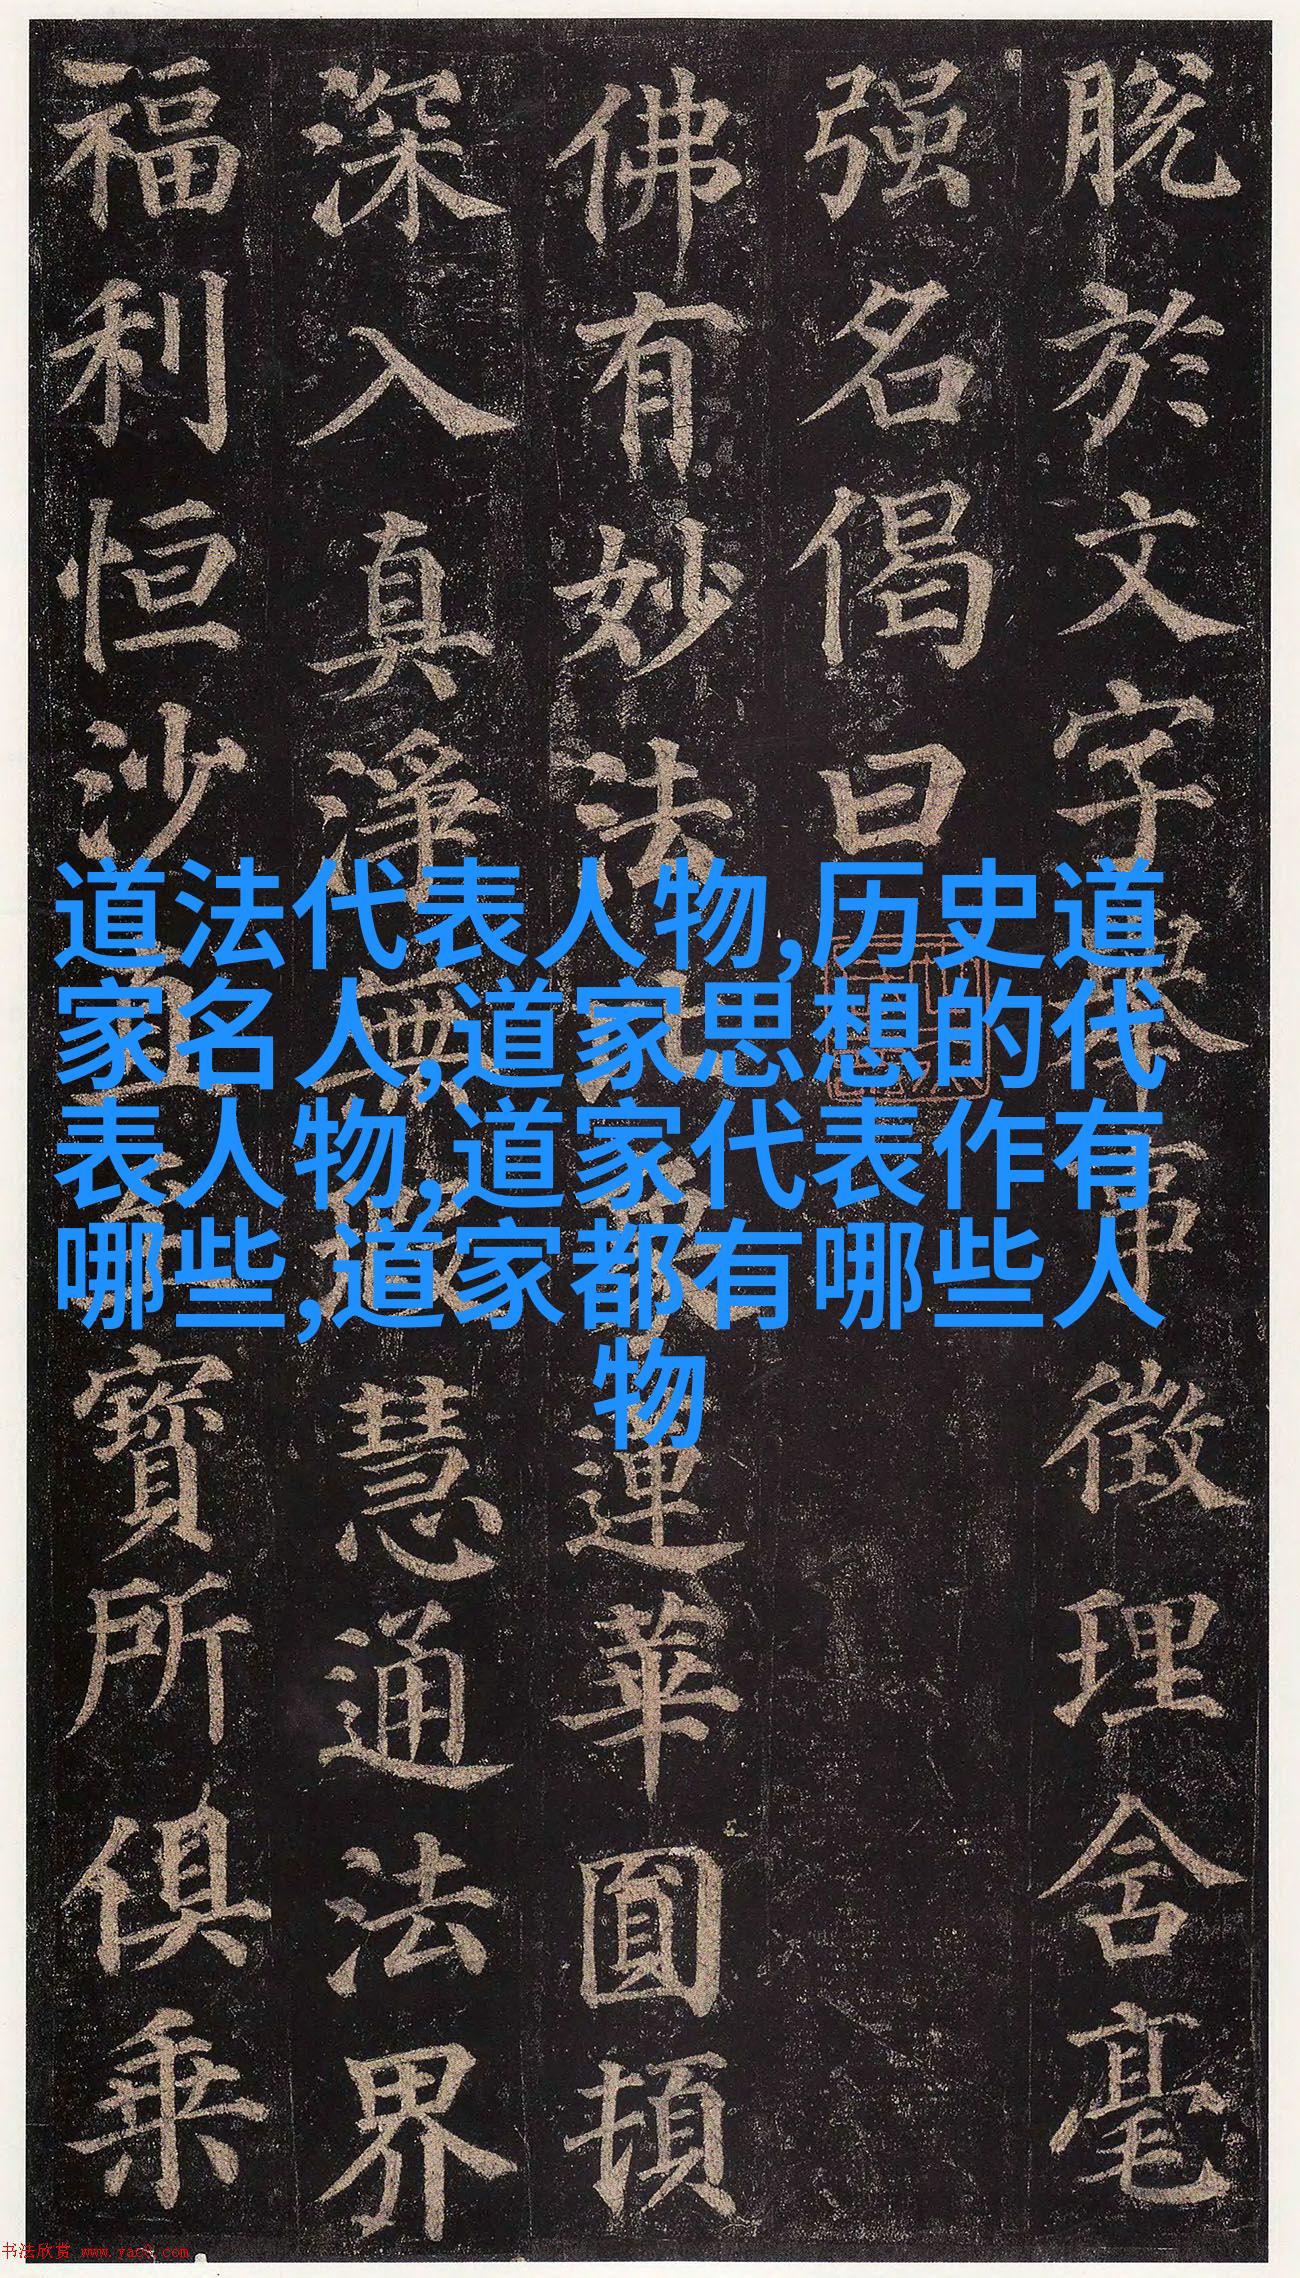 脱於文字舉事徵理含毫
强名偈曰
佛有妙法蓮華圓頓
深入真淨無慧通法界
福利恒沙直寶所俱乗
道法代表人物,历史道
家名人,道家思想的代
表人物,道家代表作有
哪些,道家都有哪些人
物
书法欣赏 www.yac8.com